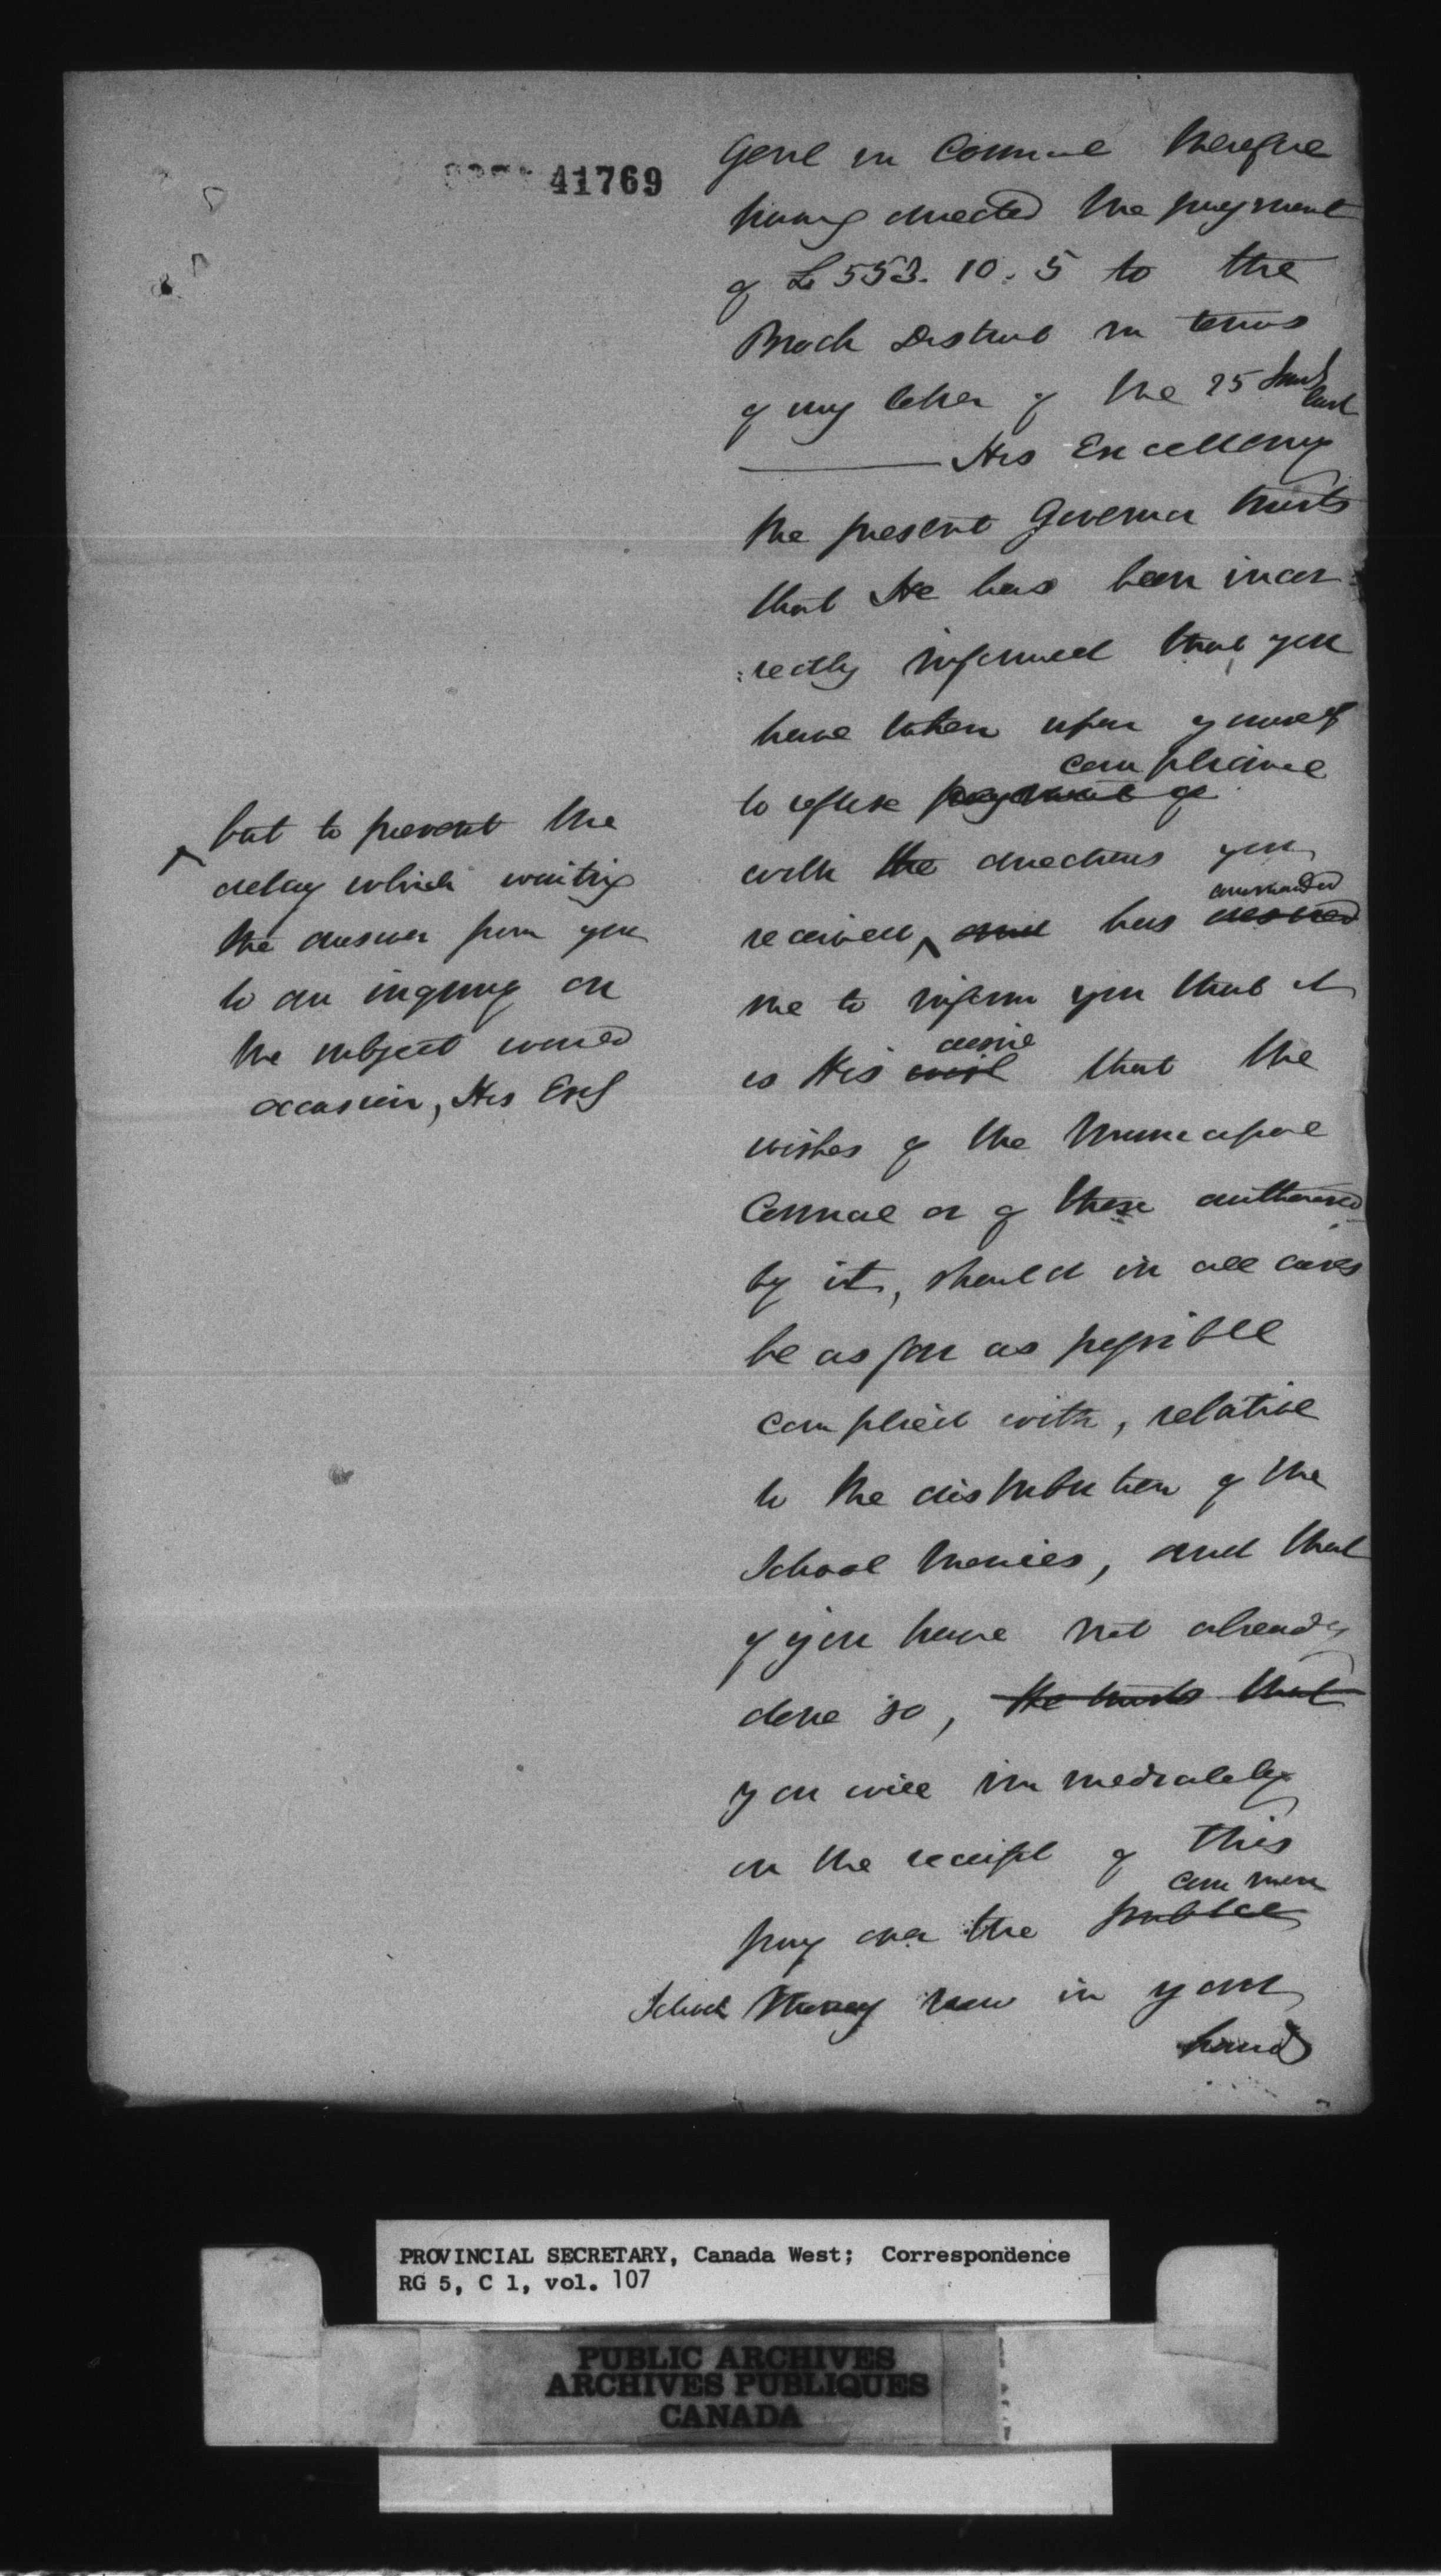 41769
Genl in Council therefore
having directed the payment
of £553. 10. 5 to the
Brock District in terms
of my letter of the 25
last
His Excellency
the present Governor trusts
that He has been incor
:rectly informed that you
have taken upon yourself
compliance
to refuse payment of
with the directions you
commanded
received, and has desired
but to prevent the
delay which waiting
the answer from you
to an inquiry on
the subject would
occasion, His Exy
me to inform you that it
desire
is His wish that the
wishes of the Municipal
Council or of those authorised
by it, should in all cases
be as far as possible
complied with, relative
to the distribution of the
School monies, and that
if you have not already
done so, He trusts that
you will immediately
on the receipt of this
common
pay over the public
School Money now in your
hands
PROVINCIAL SECRETARY, Canada West; Correspondence
RG 5, C 1, vol. 107
PUBLIC ARCHIVES
ARCHIVES PUBLIQUES
CANADA